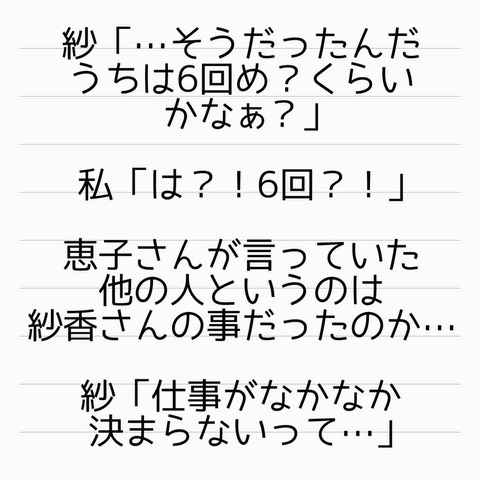 紗「…そうだったんだ
うちは6回め？くらい
かなぁ？」
私「は？！6回？！」
恵子さんが言っていた
他の人というのは
紗香さんの事だったのか…
紗「仕事がなかなか
決まらないって…」